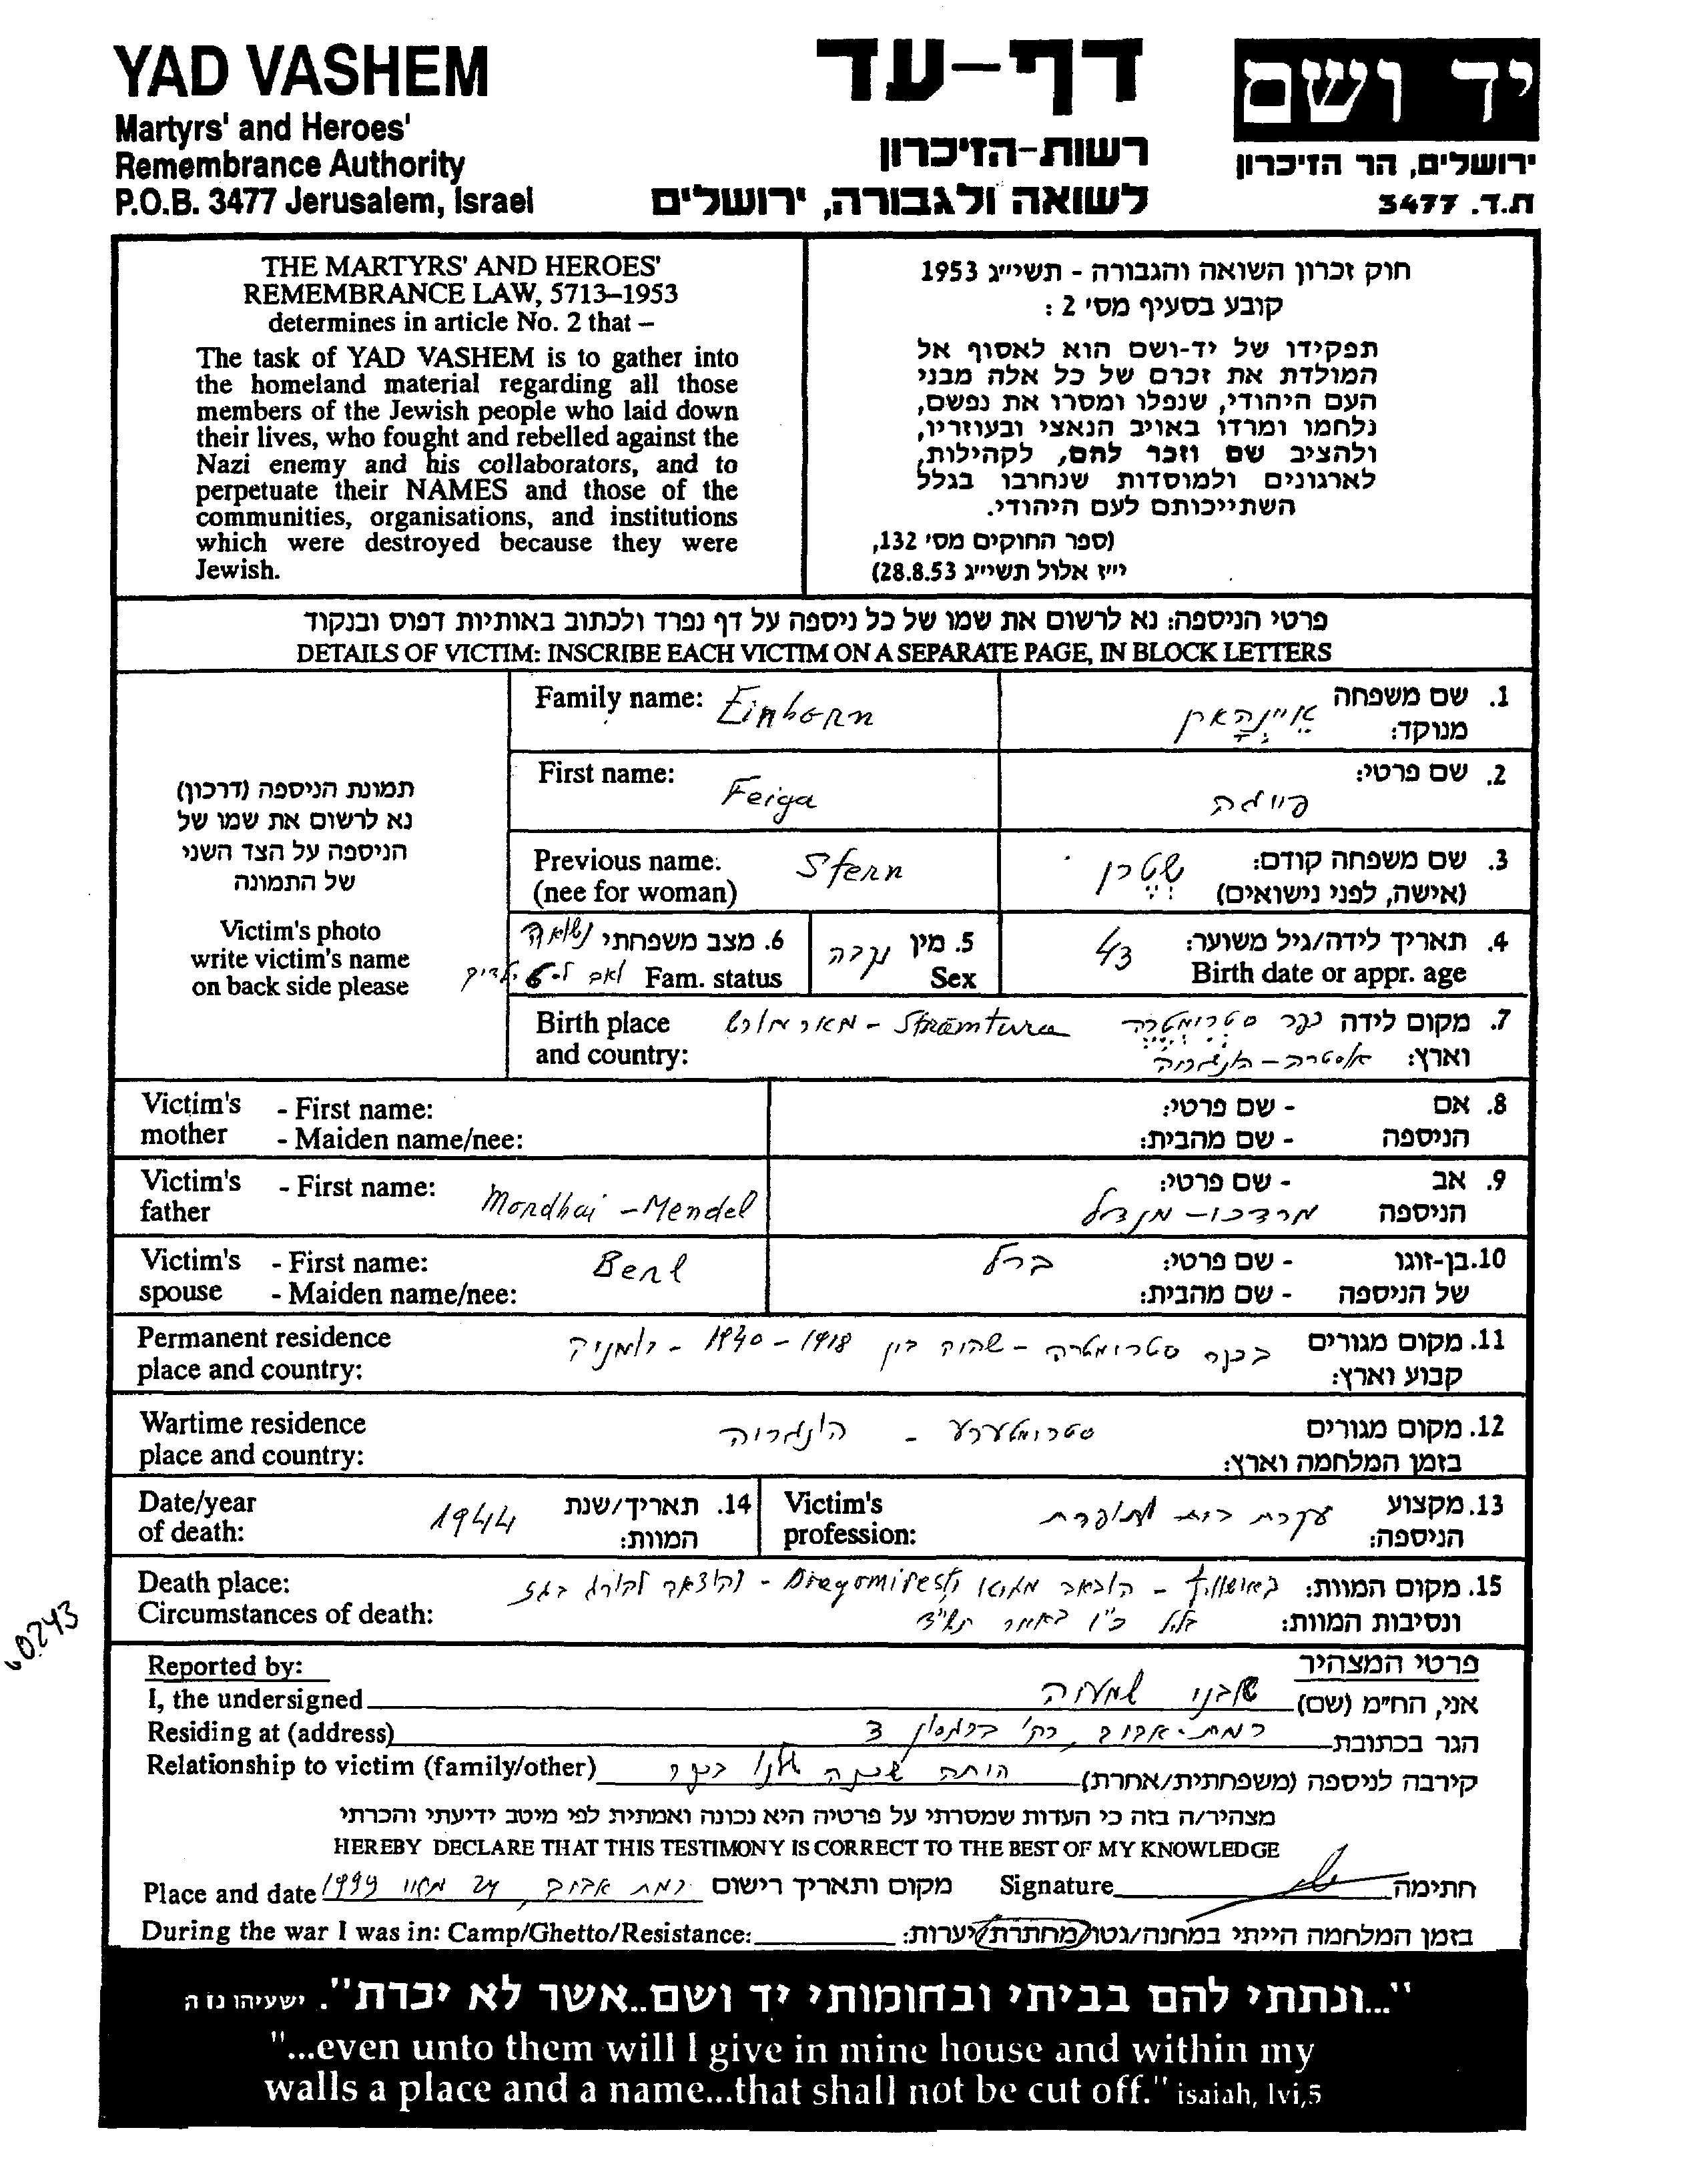 YAD VASHEM
Martyrs' and Heroes'
Remembrance Authority
P.O.B. 3477 Jerusalem, Israel
דף-עד
רשות-הזיכרון
לשואה ולגבורה, ירושלים
יד ושם
ירושלים, הר הזיכרון
ת.ד. 3477
THE MARTYRS' AND HEROES'
REMEMBRANCE LAW, 5713–1953
determines in article No. 2 that –
The task of YAD VASHEM is to gather into
the homeland material regarding all those
members of the Jewish people who laid down
their lives, who fought and rebelled against the
Nazi enemy and his collaborators, and to
perpetuate their NAMES and those of the
communities, organisations, and institutions
which were destroyed because they were
Jewish.
חוק זכרון השואה והגבורה - תשי״ג 1953
קובע בסעיף מס׳ 2 :
תפקידו של יד-ושם הוא לאסוף אל
המולדת את זכרם של כל אלה מבני
העם היהודי, שנפלו ומסרו את נפשם,
נלחמו ומרדו באויב הנאצי ובעוזריו,
ולהציב שם וזכר להם, לקהילות,
לארגונים ולמוסדות שנחרבו בגלל
השתייכותם לעם היהודי.
(ספר החוקים מס׳ 132,
י״ז אלול תשי״ג 28.8.53)
פרטי הניספה: נא לרשום את שמו של כל ניספה על דף נפרד ולכתוב באותיות דפוס ובנקוד
DETAILS OF VICTIM: INSCRIBE EACH VICTIM ON A SEPARATE PAGE, IN BLOCK LETTERS
תמונת הניספה (דרכון)
נא לרשום את שמו של
הניספה על הצד השני
של התמונה
Victim's photo
write victim's name
on back side please
Family name: Einhorn
1. שם משפחה
מנוקד: אֵיינְהָארן
First name: Feiga
2. שם פרטי: פייגה
Previous name: Stern
(nee for woman)
3. שם משפחה קודם: שְטֶרן
(אישה, לפני נישואים)
4. תאריך לידה/גיל משוער: 43
Birth date or appr. age
5. מין נקבה
Sex
6. מצב משפחתי נשואה
Fam. status לאב ל-6 ילדים
Birth place
and country: Strâmtura - מארמורש
7. מקום לידה כפר סטרימטרה
וארץ: אוסטריה-הונגריה
Victim's mother - First name:
- Maiden name/nee:
8. אם הניספה - שם פרטי:
- שם מהבית:
Victim's father - First name: Mordhai - Mendel
9. אב הניספה - שם פרטי: מרדכי-מנדל
Victim's spouse - First name: Berl
- Maiden name/nee:
10. בן-זוגו של הניספה - שם פרטי: ברל
- שם מהבית:
Permanent residence
place and country:
11. מקום מגורים
קבוע וארץ: בכפר סטרימטרה - שהיה בין 1918 - 1940 - רומניה
Wartime residence
place and country:
12. מקום מגורים
בזמן המלחמה וארץ: סטרימטערע - הונגריה
Date/year
of death: 1944
14. תאריך/שנת
המוות:
Victim's
profession:
13. מקצוע
הניספה: עקרת בית ותופרת
Death place:
Circumstances of death:
15. מקום המוות: באושוויץ - הובאה מגטו Dragomiresti - והוצאה להורג בגז
ונסיבות המוות: בליל כ״ו באייר תש״ד
60243
Reported by:
פרטי המצהיר
I, the undersigned
אני, החי״מ (שם) שלמה
Residing at (address)
הגר בכתובת רמת-אביב, רח׳ ברגסון 3
Relationship to victim (family/other)
קירבה לניספה (משפחתית/אחרת) היתה שכנה שלנו בכפר
מצהיר/ה בזה כי העדות שמסרתי על פרטיה היא נכונה ואמתית לפי מיטב ידיעתי והכרתי
HEREBY DECLARE THAT THIS TESTIMONY IS CORRECT TO THE BEST OF MY KNOWLEDGE
Place and date מקום ותאריך רישום רמת אביב, 24 מאי 1999
Signature חתימה
During the war I was in: Camp/Ghetto/Resistance:
בזמן המלחמה הייתי במחנה/גטו/מחתרת/יערות:
"...ונתתי להם בביתי ובחומותי יד ושם..אשר לא יכרת". ישעיהו נו ה
"...even unto them will I give in mine house and within my
walls a place and a name...that shall not be cut off." isaiah, lvi,5